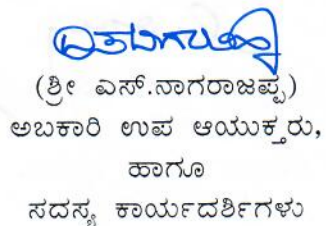 (ಶ್ರೀ ಎಸ್.ನಾಗರಾಜಪ್ಪ)
ಅಬಕಾರಿ ಉಪ ಆಯುಕ್ತರು,
ಹಾಗೂ
ಸದಸ್ಯ ಕಾರ್ಯದರ್ಶಿಗಳು